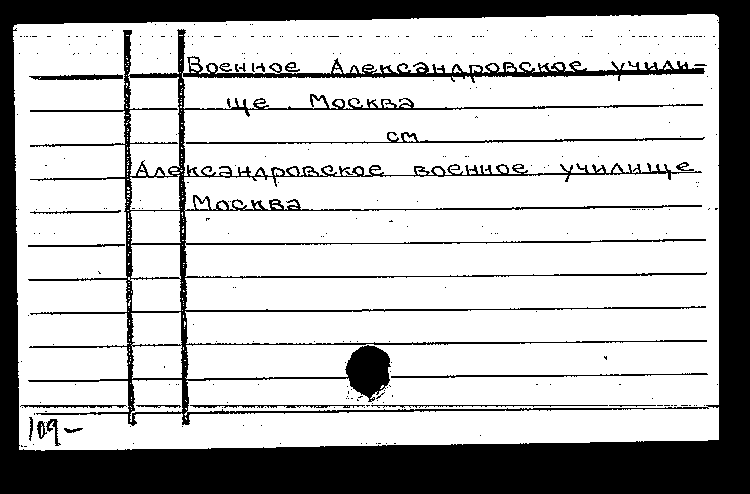 Военное Александровское учили-
ще. Москва
см.
Александровское военное училище
Москва
109-